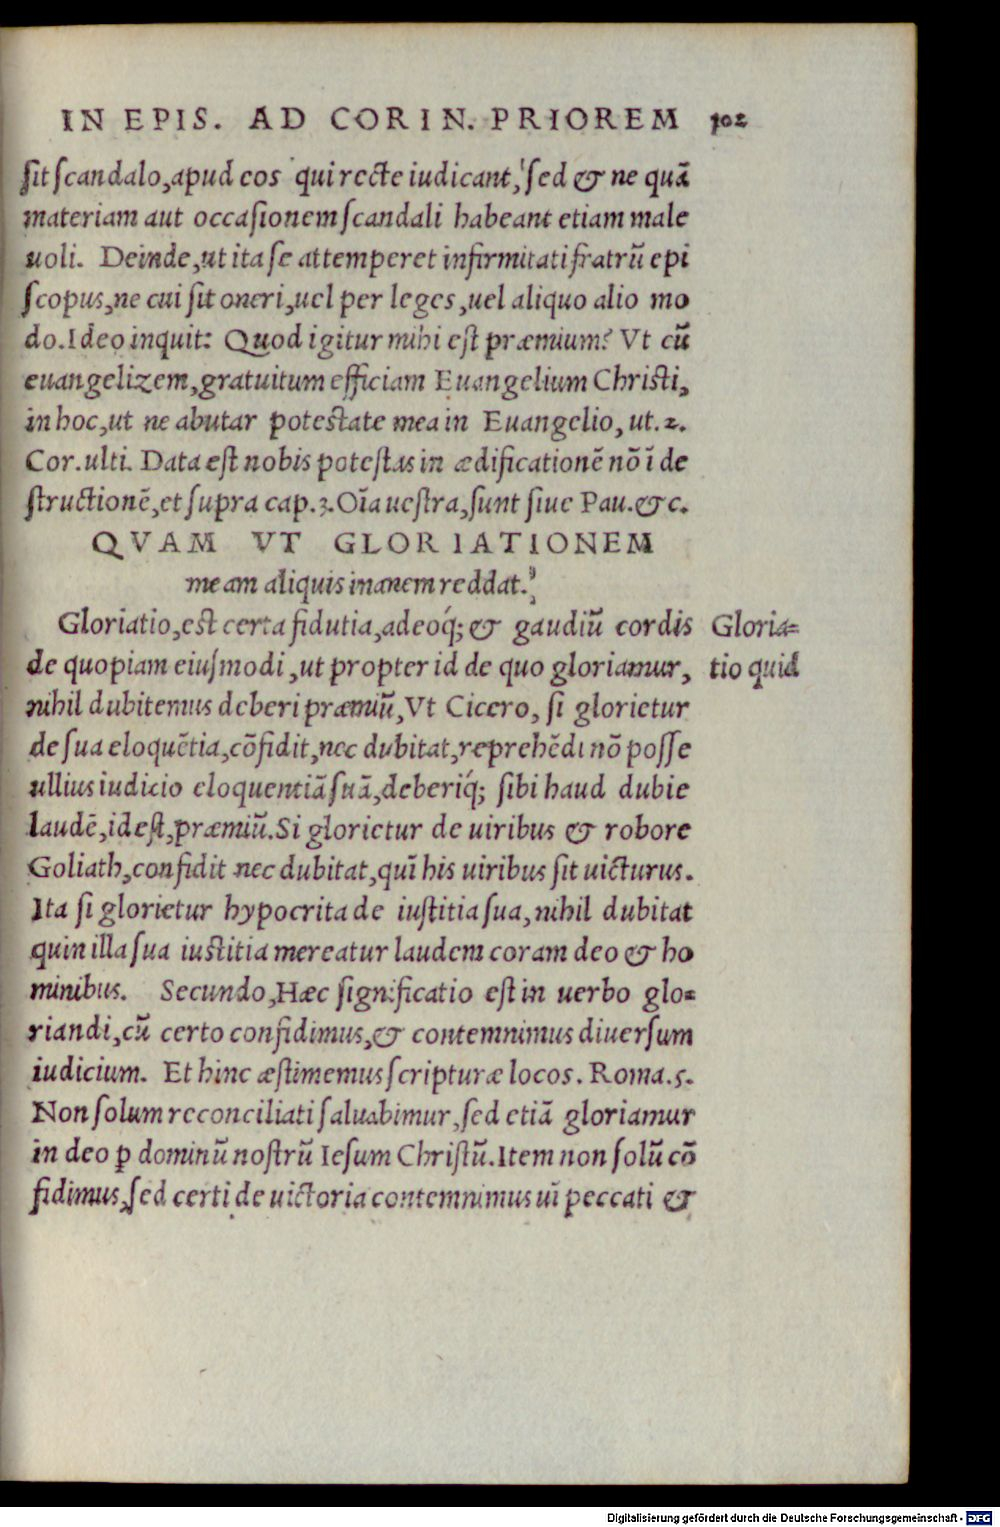 IN EPIS. AD CORIN. PRIOREM 102
ſit ſcandalo, apud eos qui recte iudicant, ſed & ne quā
materiam aut occaſionem ſcandali habeant etiam male
uoli. Deinde, ut ita ſe attemperet infirmitati fratrū epi
ſcopus, ne cui ſit oneri, uel per leges, uel aliquo alio mo
do. Ideo inquit: Quod igitur mihi eſt præmium? Vt cū
euangelizem, gratuitum efficiam Euangelium Chriſti,
in hoc, ut ne abutar poteſtate mea in Euangelio, ut. 2.
Cor. ulti. Data eſt nobis poteſtas in ædificationē nō ī de
ſtructionē, et ſupra cap. 3. Oīa ueſtra, ſunt ſiue Pau. & c.
QVAM VT GLORIATIONEM
meam aliquis inanem reddat.
Gloriatio, eſt certa fidutia, adeoq́; & gaudiū cordis
Gloria=
de quopiam eiuſmodi, ut propter id de quo gloriamur,
tio quid
nihil dubitemus deberi præmiū, Vt Cicero, ſi glorietur
de ſua eloquētia, cōfidit, nec dubitat, reprehēdi nō poſſe
ullius iudicio eloquentiā ſuā, deberiq́; ſibi haud dubie
laudē, id eſt, præmiū. Si glorietur de uiribus & robore
Goliath, confidit nec dubitat, quī his uiribus ſit uicturus.
Ita ſi glorietur hypocrita de iuſtitia ſua, nihil dubitat
quin illa ſua iuſtitia mereatur laudem coram deo & ho
minibus. Secundo, Hæc ſignificatio eſt in uerbo glo=
riandi, cū certo confidimus, & contemnimus diuerſum
iudicium. Et hinc æſtimemus ſcripturæ locos. Roma. 5.
Non ſolum reconciliati ſaluabimur, ſed etiā gloriamur
in deo ꝑ dominū noſtrū Ieſum Chriſtū. Item non ſolū cō
fidimus, ſed certi de uictoria contemnimus uī peccati &
Digitalisierung gefördert durch die Deutsche Forschungsgemeinschaft - DFG